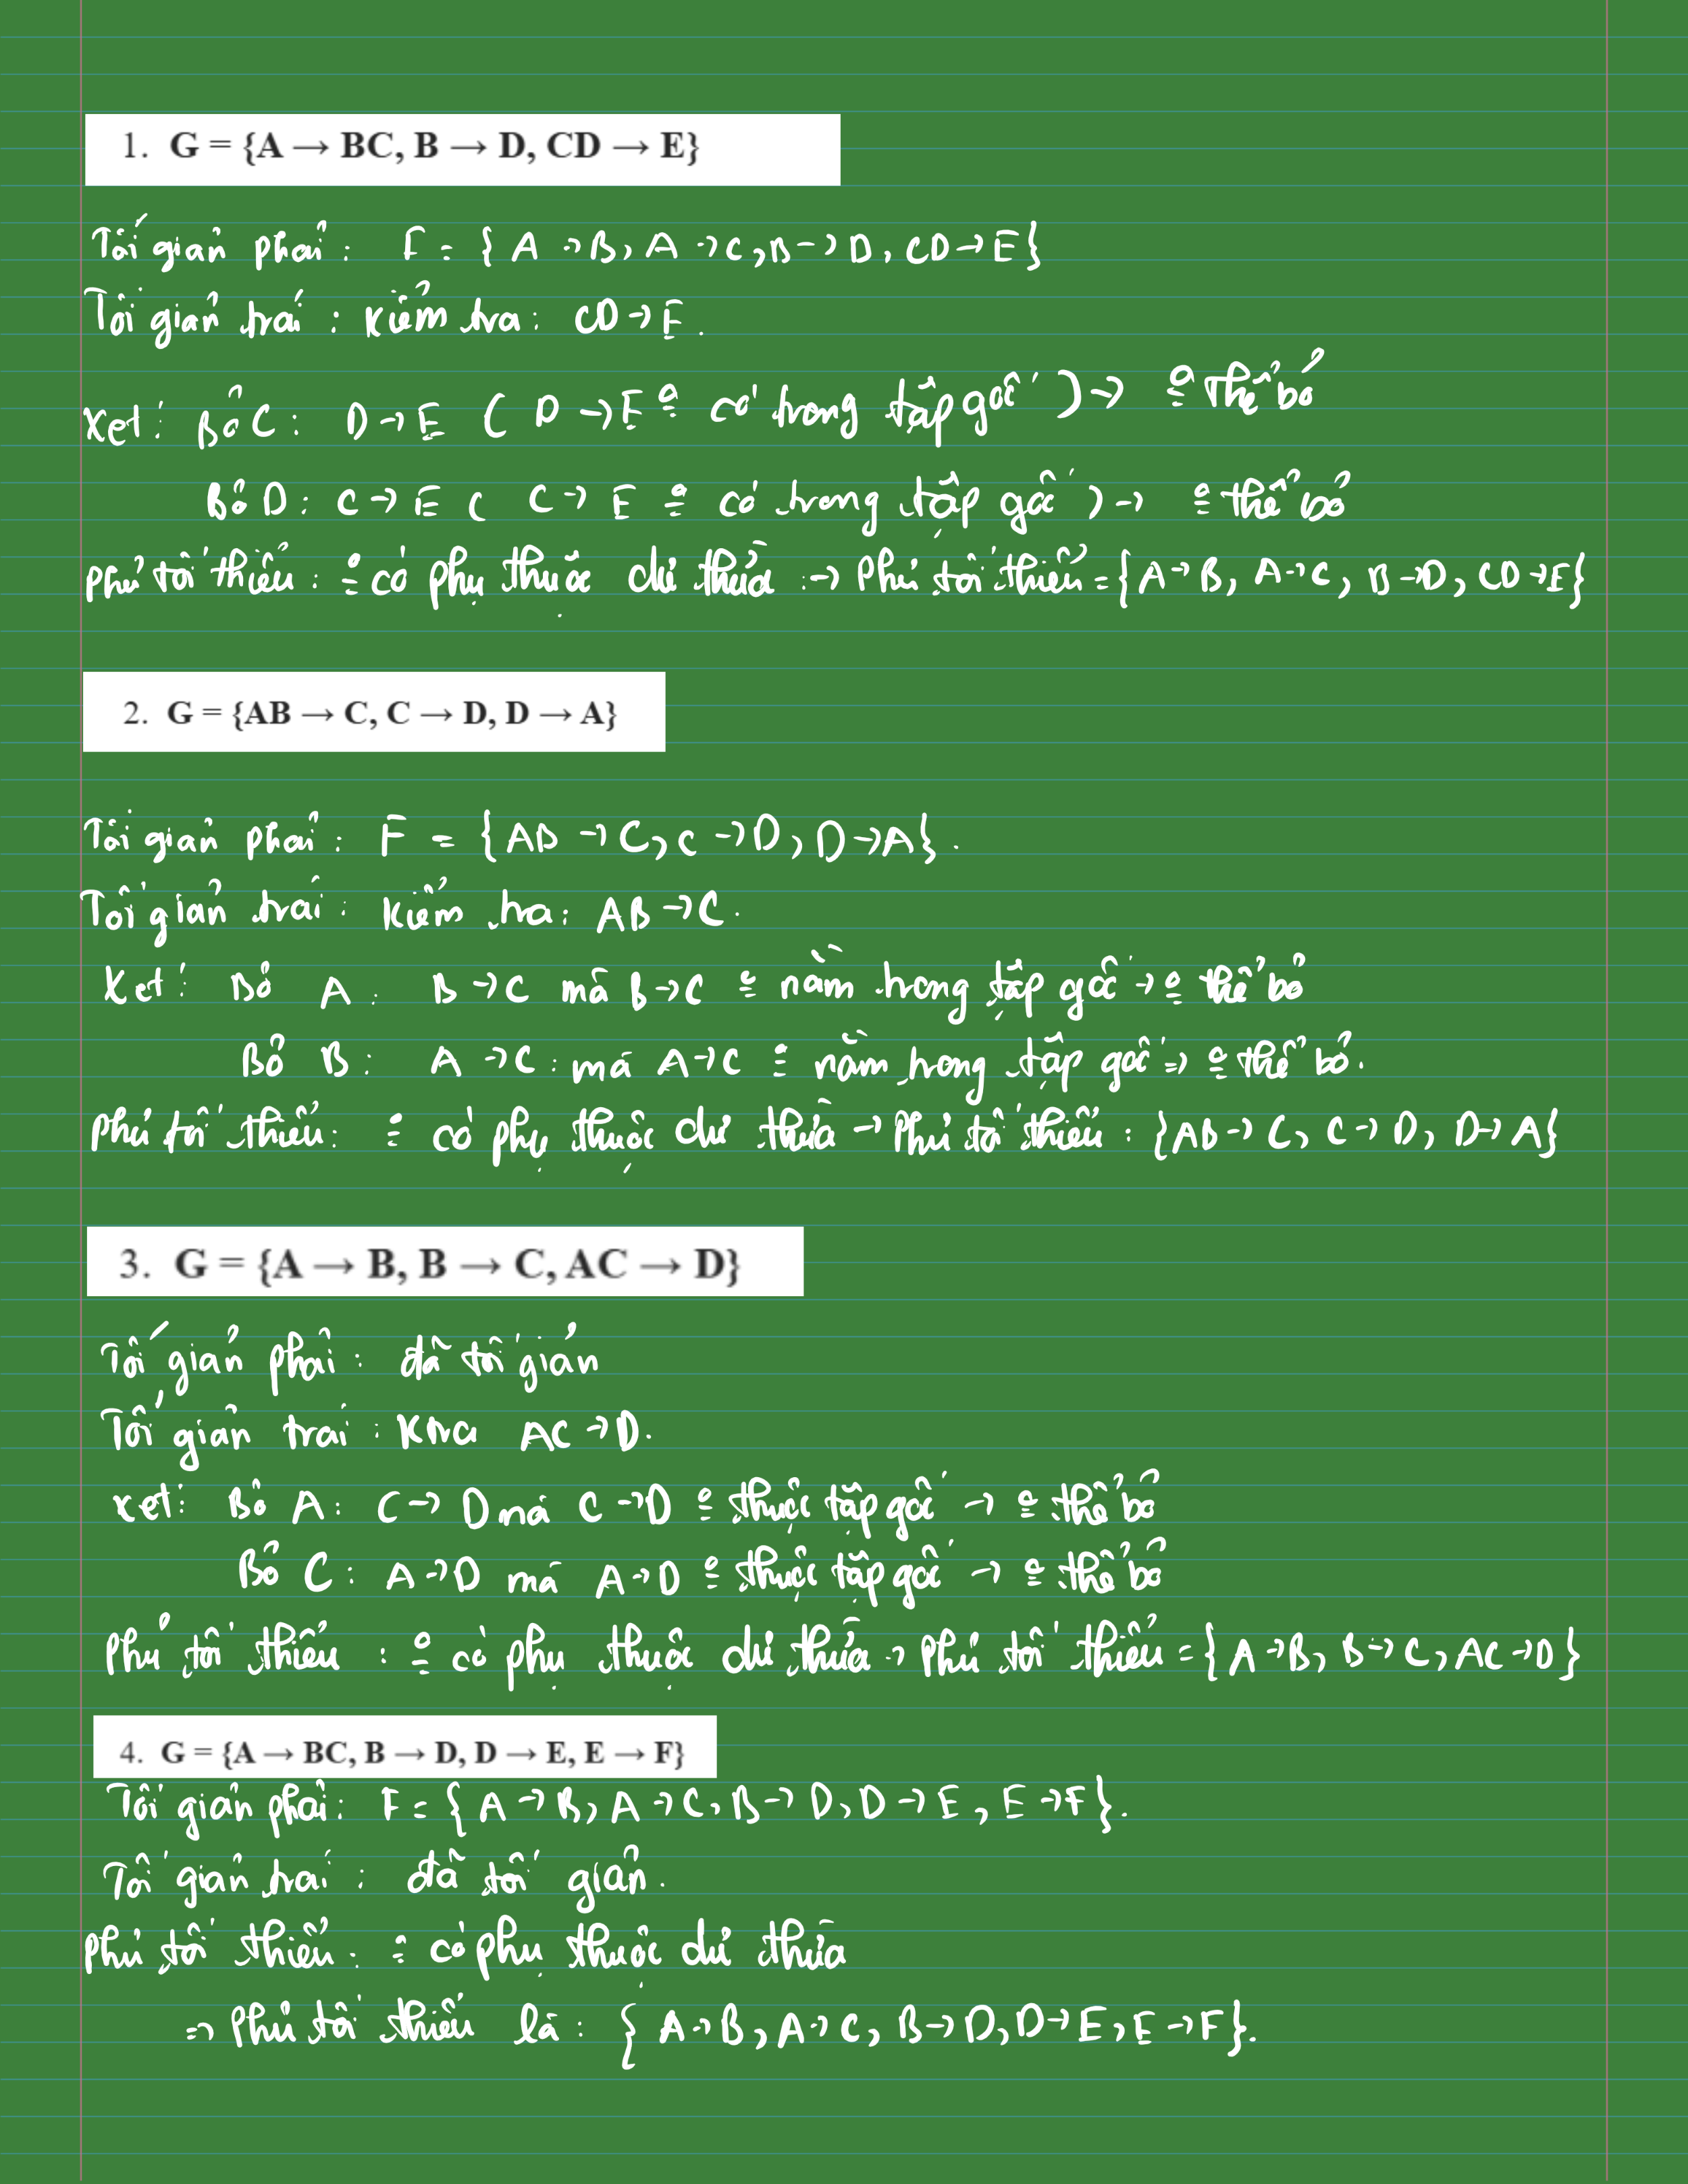 1. G = {A → BC, B → D, CD → E}
Tối giản phải : F = { A → B, A → C, B → D, CD → E}
Tối giản trái : Kiểm tra : CD → E.
Xét : Bỏ C : D → E ( D → E có trong tập gốc ) → thể bỏ
Bỏ D : C → E ( C → E có trong tập gốc ) → thể bỏ
Phủ tối thiểu : có phụ thuộc dư thừa : → Phủ tối thiểu = {A → B, A → C, B → D, CD → E}
2. G = {AB → C, C → D, D → A}
Tối giản phải : F = {AB → C, C → D, D → A}.
Tối giản trái : Kiểm tra : AB → C.
Xét : Bỏ A : B → C mà B → C nằm trong tập gốc → thể bỏ
Bỏ B : A → C : mà A → C nằm trong tập gốc => thể bỏ.
Phủ tối thiểu : có phụ thuộc dư thừa → Phủ tối thiểu : {AB → C, C → D, D → A}
3. G = {A → B, B → C, AC → D}
Tối giản phải : đã tối giản
Tối giản trái : Ktra AC → D.
Xét : Bỏ A : C → D mà C → D thuộc tập gốc → thể bỏ
Bỏ C : A → D mà A → D thuộc tập gốc → thể bỏ
Phủ tối thiểu : có phụ thuộc dư thừa → Phủ tối thiểu = {A → B, B → C, AC → D}
4. G = {A → BC, B → D, D → E, E → F}
Tối giản phải : F = { A → B, A → C, B → D, D → E, E → F}.
Tối giản trái : đã tối giản.
Phủ tối thiểu : có phụ thuộc dư thừa
=> Phủ tối thiểu là : { A → B, A → C, B → D, D → E, E → F}.